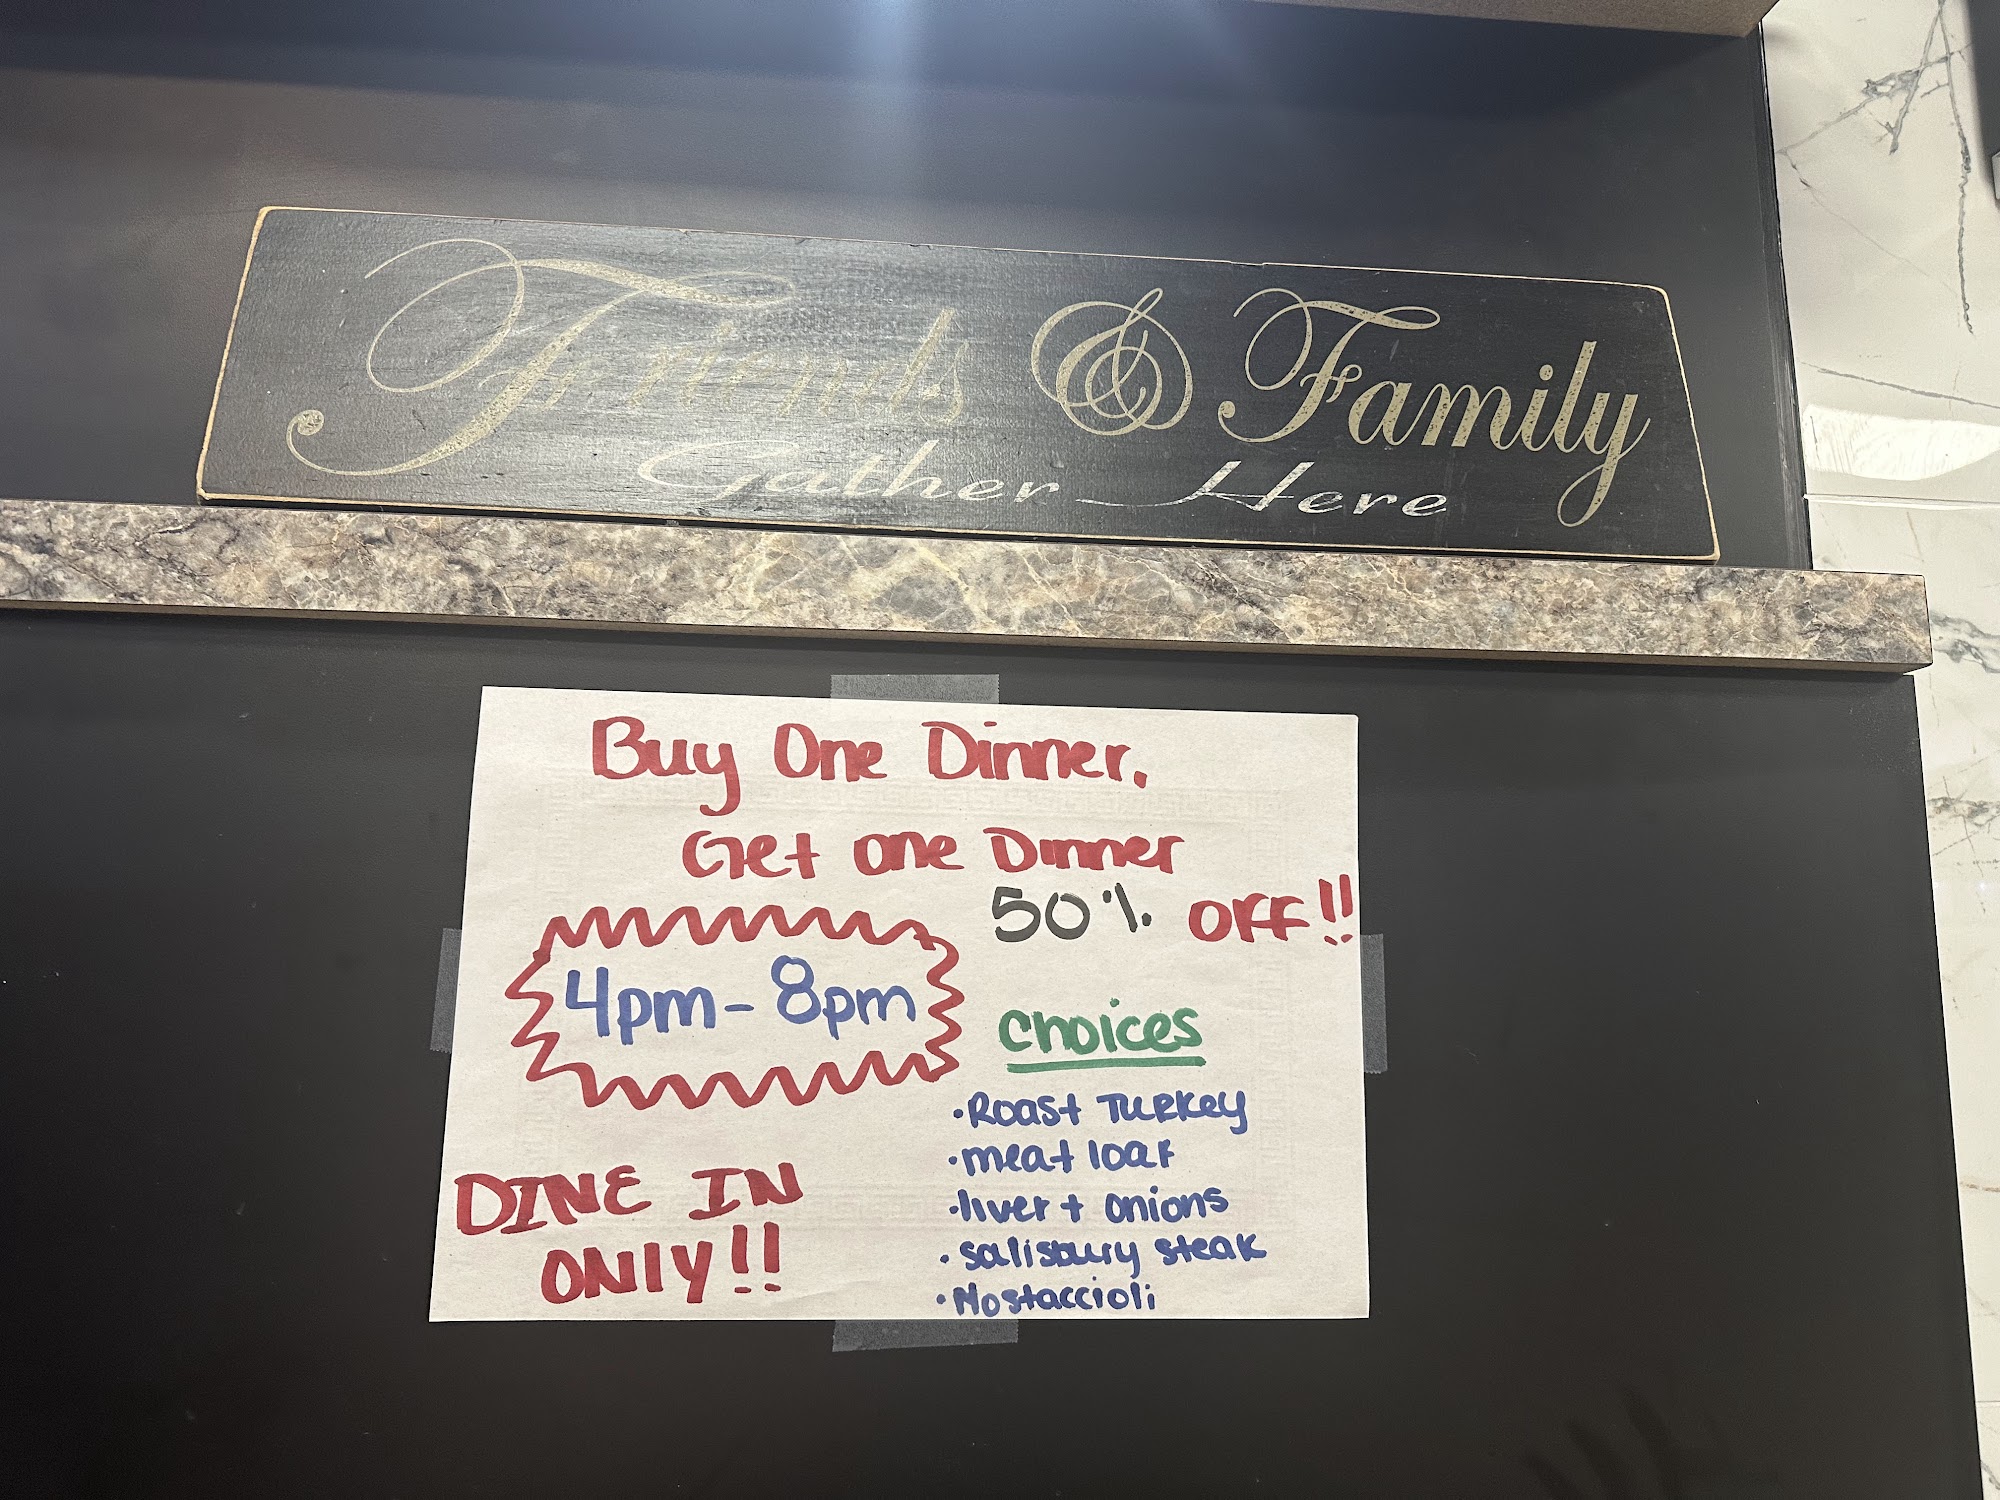 Friends & Family
Gather Here
Buy One Dinner.
Get one Dinner
50% OFF!!
4pm-8pm
Choices
• Roast Turkey
• meat loaf
• liver + onions
• salisbury steak
• Mostaccioli
DINE IN
ONLY!!